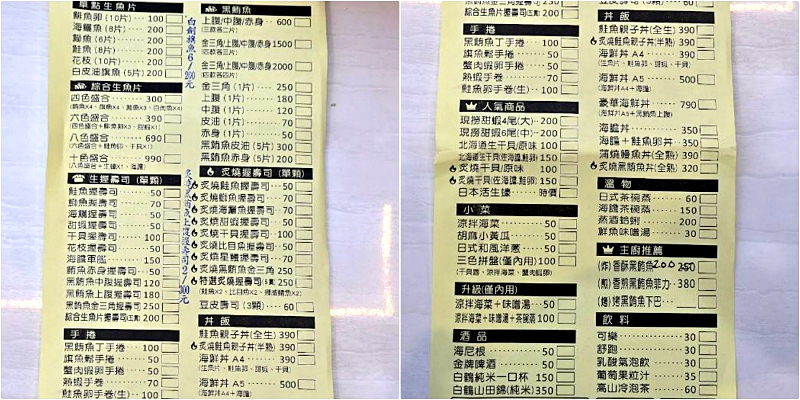 單點生魚片
鮮魚卵 (10片) 100
海鱺魚 (5片) 200
鰤魚 (6片) 200
鮭魚 (8片) 200
花枝 (10片) 200
白皮油旗魚 (5片) 200
綜合生魚片
四色盛合 300
六色盛合 390
八色盛合 690
十色盛合 990
生握壽司 (單顆)
鮭魚握壽司 50
鰤魚握壽司 70
海鱺握壽司 50
甜蝦握壽司 50
干貝握壽司 100
花枝握壽司 50
海膽軍艦 150
鮪魚赤身握壽司 50
黑鮪魚中腹握壽司 120
黑鮪魚上腹握壽司 180
黑鮪魚金三角握壽司 250
綜合生魚片握壽司(五顆) 200
手捲
黑鮪魚丁手捲 100
旗魚鬆手捲 50
蟹肉蝦卵手捲 50
熟蝦手卷 70
鮭魚卵手卷(生) 100
白劍旗魚6/200元
黑鮪魚
上腹/中腹/赤身 600
(三款各二片)
金三角/上腹/中腹/赤身 1500
金三角/上腹/中腹/赤身 2000
金三角 (1片) 250
上腹 (1片) 180
中腹 (1片) 120
皮油 (1片) 70
赤身 (1片) 50
黑鮪魚皮油 (5片) 300
黑鮪魚赤身 (5片) 200
炙燒握壽司 (單顆)
炙燒鮭魚握壽司 50
炙燒鰤魚握壽司 70
炙燒海鱺魚握壽司 70
炙燒甜蝦握壽司 50
炙燒干貝握壽司 100
炙燒比目魚握壽司 70
炙燒星鰻握壽司 70
炙燒黑鮪魚金三角 250
特選炙燒握壽司(5顆) 250
豆皮壽司 (3顆) 60
丼飯
鮭魚親子丼(全生) 390
炙燒鮭魚親子丼(半熟) 390
海鮮丼 A4 390
(生魚片、鮭魚卵、甜蝦、干貝)
海鮮丼 A5 500
(海鮮丼A4+海膽)
綜合生魚片握壽司(五顆) 200
手捲
黑鮪魚丁手捲 100
旗魚鬆手捲 50
蟹肉蝦卵手捲 50
熟蝦手卷 70
鮭魚卵手卷(生) 100
人氣商品
現撈甜蝦4尾(大) 200
現撈甜蝦6尾(中) 200
北海道生干貝/原味 100
北海道生干貝(佐海膽,鮭卵) 150
炙燒干貝/原味 100
炙燒干貝(佐海膽,鮭卵) 150
日本活生蠔 時價
小菜
涼拌海菜 50
胡麻小黃瓜 50
日式和風洋蔥 50
三色拼盤(僅內用) 100
(干貝唇、涼拌海菜、蟹肉蝦卵)
升級(僅內用)
涼拌海菜+味噌湯 50
涼拌海菜+味噌湯+茶碗蒸 100
酒品
海尼根 50
金牌啤酒 50
白鶴純米一口杯 150
白鶴山田錦(純米) 350
豆皮壽司 (3顆) 60
丼飯
鮭魚親子丼(全生) 390
炙燒鮭魚親子丼(半熟) 390
海鮮丼 A4 390
(生魚片、鮭魚卵、甜蝦、干貝)
海鮮丼 A5 500
(海鮮丼A4+海膽)
豪華海鮮丼 790
(海鮮丼A5+黑鮪魚上腹)
海膽丼 350
海膽+鮭魚卵丼 350
蒲燒鰻魚丼(全熟) 390
炙燒黑鮪魚丼(全熟) 320
溫物
日式茶碗蒸 60
海膽茶碗蒸 150
蒸酒蛤蜊 200
鮮魚味噌湯 30
主廚推薦
(炸) 香酥黑鮪魚 200 250
(煎) 香煎黑鮪魚菲力 380
(烤) 烤黑鮪魚下巴
飲料
可樂 30
舒跑 30
乳酸氣泡飲 30
葡萄果粒汁 35
高山冷泡茶 60